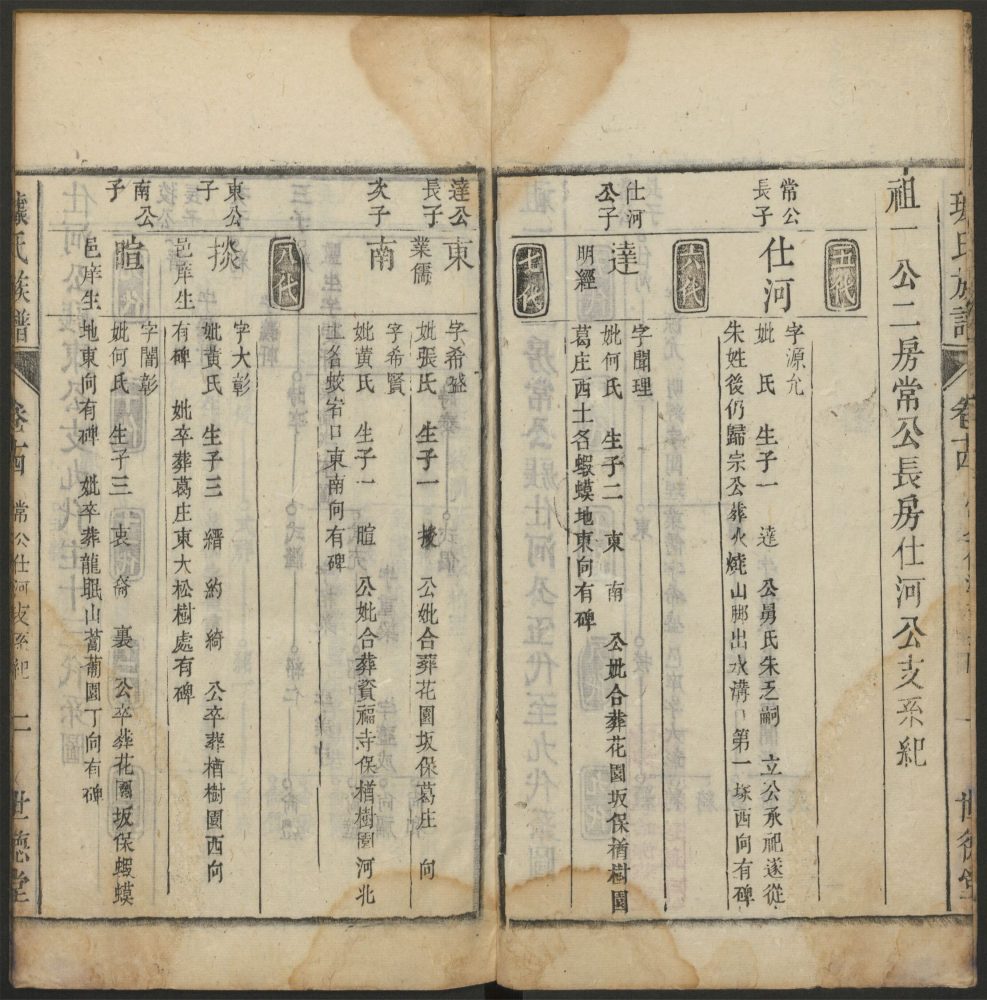 祖一公二房常公長房仕河公支系紀
五代
常公
長子
仕河
字源允
妣 氏 生子一 達 公舅氏朱乏嗣 立公承祀遂從
朱姓後仍歸宗公葬火燒山脚出水溝 第一塚西向有碑
六代
仕河
公子
達
明經
字聞理
妣何氏 生子二 東 南 公妣合葬花園坂保楢樹園
葛庄西土名蝦蟆地東向有碑
七代
達公
長子
東
業儒
字希盛
妣張氏 生子一 掞 公妣合葬花園坂保葛庄 向
次子
南
字希賢
妣黃氏 生子一 暄 公妣合葬資福寺保楢樹園河北
土名蛟岩口東南向有碑
八代
東公
子
掞
邑庠生
字大彰
妣黃氏 生子三 縉 約 綺 公卒葬楢樹園西向
有碑 妣卒葬葛庄東大松樹處有碑
南公
子
暄
邑庠生
字闇彰
妣何氏 生子三 衷 裔 裏 公卒葬花園坂保蝦蟆
地東向有碑 妣卒葬龍眠山蔔蔔園丁向有碑
氏族譜
卷十四 常公仕河支系紀 二 世德堂